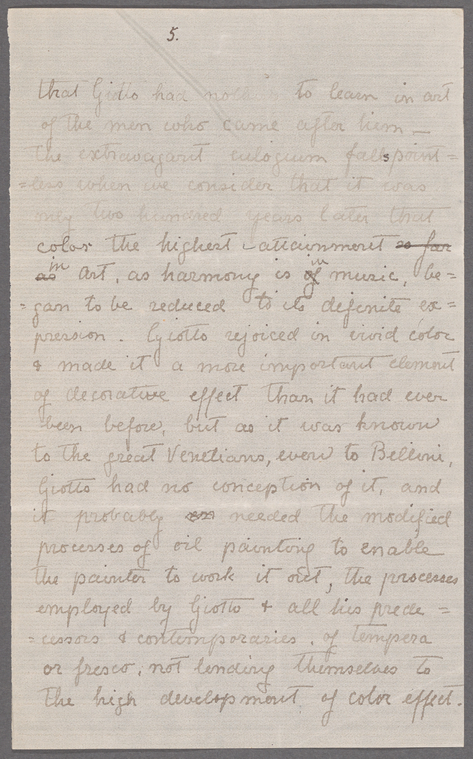 5.
that Giotto had nothing to learn in art
of the men who came after him —
the extravagant eulogium falls point=
=less when we consider that it was
only two hundred years later that
color the highest attainment so far
as in art, as harmony is of in music, be=
=gan to be reduced to its definite ex=
pression. Giotto rejoiced in vivid color
& made it a more important element
of decorative effect than it had ever
been before, but as it was known
to the great Venetians, even to Bellini,
Giotto had no conception of it, and
it probably needed the modified
processes of oil painting to enable
the painter to work it out, the processes
employed by Giotto & all his prede=
=cessors & contemporaries, of tempera
or fresco, not lending themselves to
the high development of color effect.